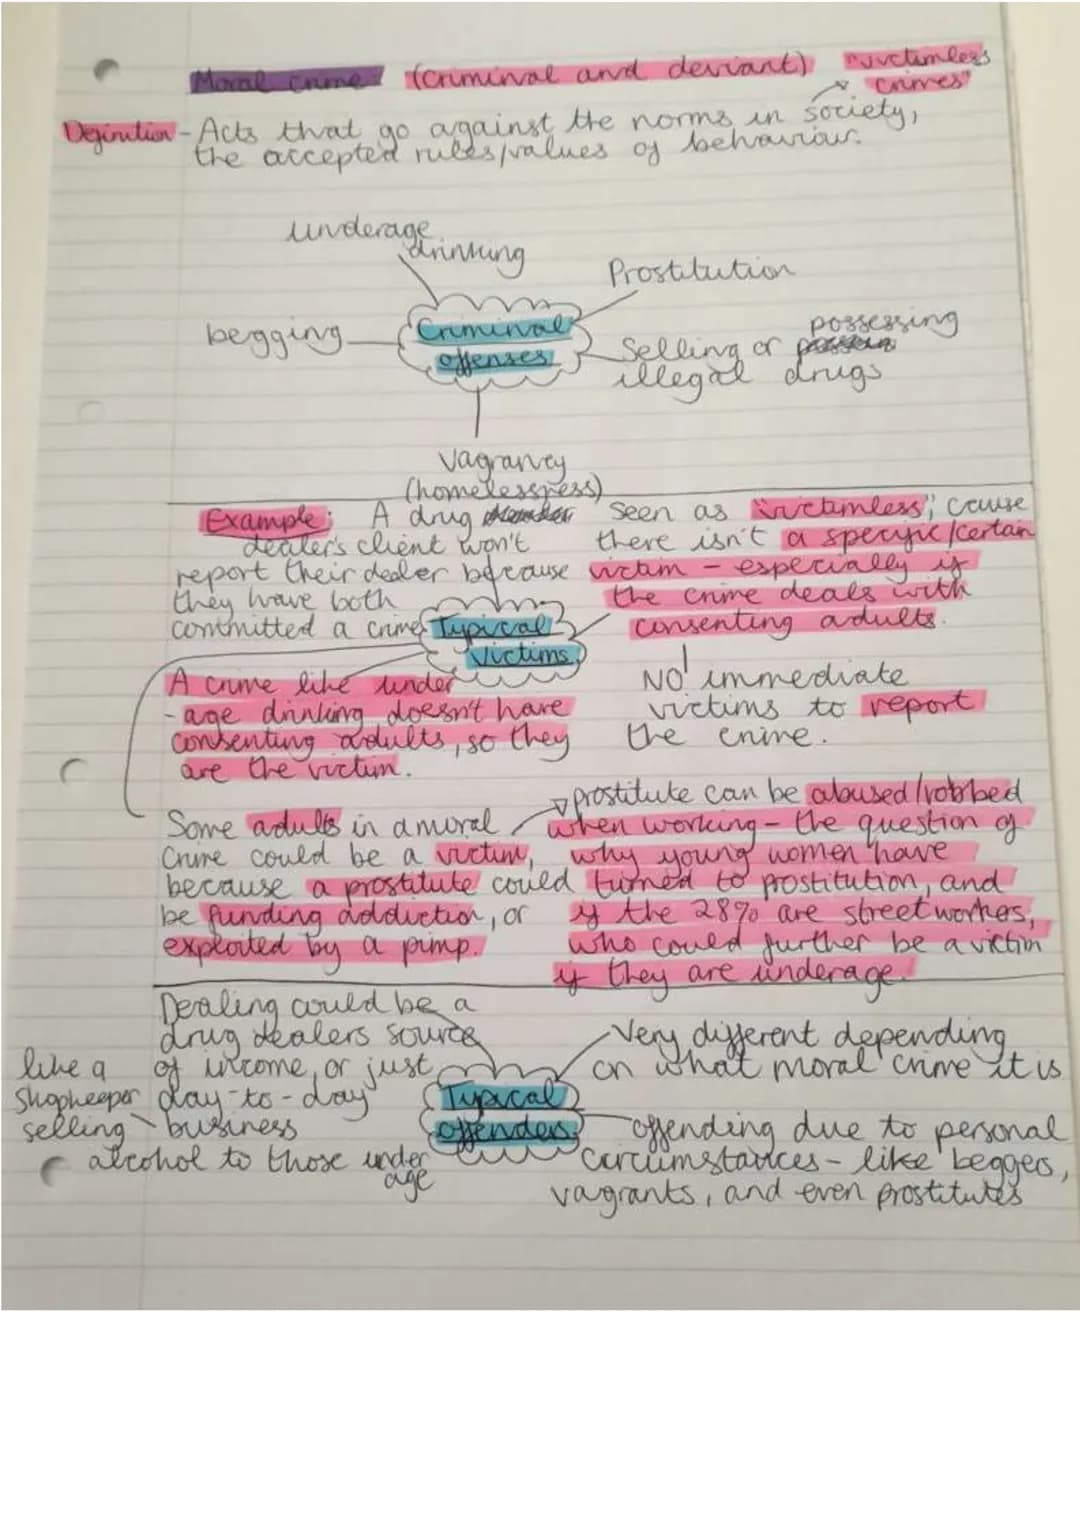 Moral crime: (criminal and deviant) "victimless
crimes"
Definition - Acts that go against the norms in society,
the accepted rules/values of behaviour.
underage
drinking
Prostitution
begging
Criminal
offenses
possessing
Selling or
illegal drugs
Vagrancy
(homelessness)
Example: A drug
dealer's client won't
report their dealer because
they have both
committed a crime
Seen as "victimless", cause
there isn't a specific/certain
victim - especially if
the crime deals with
consenting adults.
Typical
Victims
NO immediate
victims to report
the crime.
A crime like under
-age drinking doesn't have
consenting adults, so they
are the victim.
Some adults in a moral
crime could be a victim,
because a prostitute could
be funding addiction, or
exploited by a pimp.
prostitute can be abused/robbed
when working - the question of
why young women have
turned to prostitution, and
if the 28% are streetworkers,
who could further be a victim
if they are underage.
Dealing could be a
drug dealers source
of income, or just
day-to-day
business
like a
shopkeeper
selling
alcohol to those under
age
Typical
offenders
Very different depending
on what moral crime it is
offending due to personal
circumstances - like beggers,
vagrants, and even prostitutes